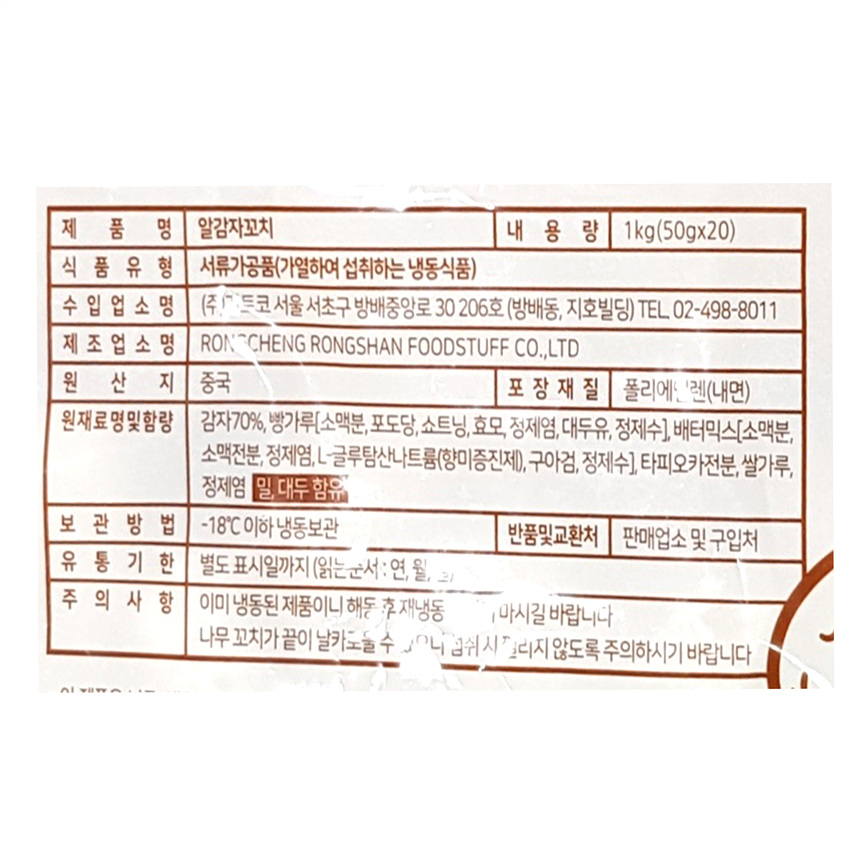 제 품 명 알감자꼬치 내 용 량 1kg(50gx20)
식 품 유 형 서류가공품(가열하여 섭취하는 냉동식품)
수 입 업 소 명 서울 서초구 방배중앙로 30 206호 (방배동, 지호빌딩) TEL. 02-498-8011
제 조 업 소 명 RONGCHENG RONGSHAN FOODSTUFF CO.,LTD
원 산 지 중국 포 장 재 질 폴리에틸렌(내면)
원재료명및함량 감자70%, 빵가루[소맥분, 포도당, 쇼트닝, 효모, 정제염, 대두유, 정제수], 배터믹스[소맥분,
소맥전분, 정제염, L-글루탐산나트륨(향미증진제), 구아검, 정제수], 타피오카전분, 쌀가루,
정제염 밀, 대두 함유
보 관 방 법 -18℃ 이하 냉동보관 반품및교환처 판매업소 및 구입처
유 통 기 한 별도 표시일까지 (읽는순서 : 연, 월,
주 의 사 항 이미 냉동된 제품이니 해동 후 재냉동 마시길 바랍니다
나무 꼬치가 끝이 날카로울 수 있으니 섭취 시 찔리지 않도록 주의하시기 바랍니다